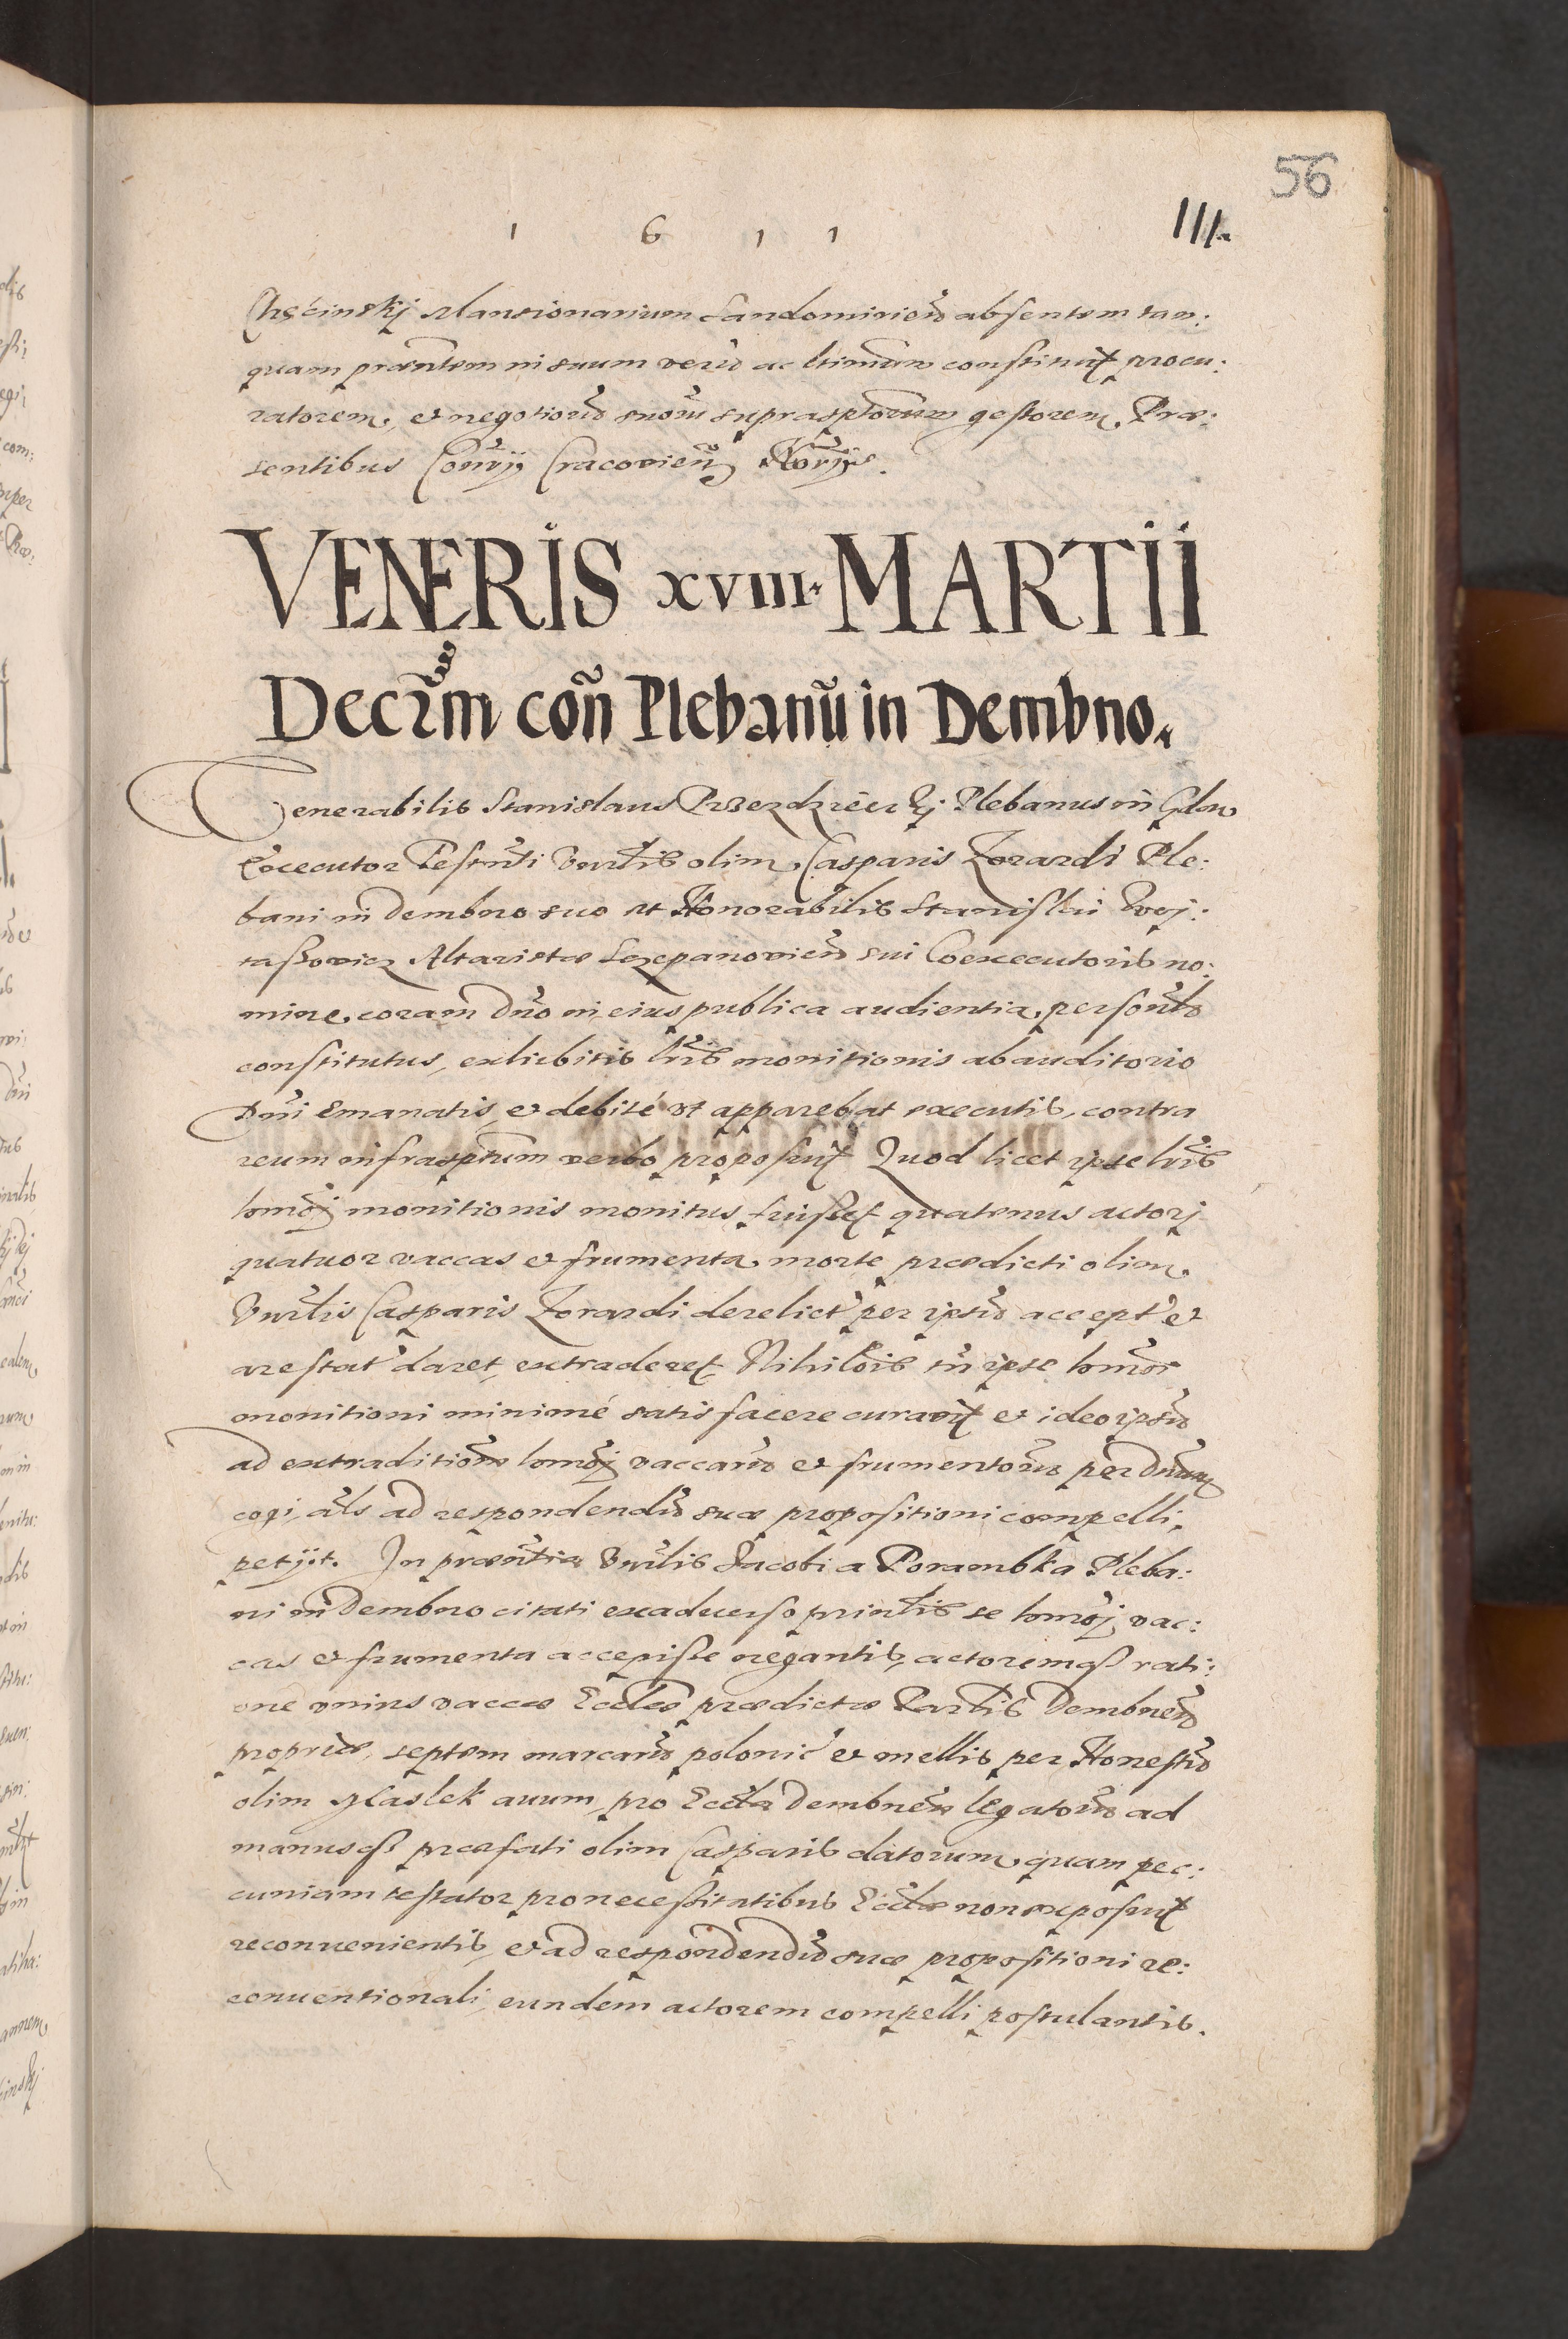 56
1 6 1 1
111.
Chęćinskÿ Mansionarium Sandomirien̄ absentem tan:
quam praesn̄tem in suum verū ac ltimūm constituit procu:
ratorem, et negotiorū suorū suprasptorum gestorem, Prae:
sentibus Con̄rijs Cracovien̄ Nōrijs.
VENERIS XVIII. MARTII
Decr̄m con̄ Plebanū in Dembno.
Venerabilis Stanislaus Plebanus in Gdow
Executor Testn̄ti Vnrl̄is olim Casparis Zorardi Ple:
bani in Dembno suo et Honorabilis Stanislai Woj:
taszowicz Altaristae Szczepanovien̄ sui Coexecutoris no:
mine, coram Dn̄o in eius publica audientia personl̄r
constitutus, exhibitis lr̄is monitionis ab auditorio
Dn̄i emanatis, et debité ut apparebat executis, contra
reum infrasptum verbo proposuit Quod licet ipse lr̄is
hmōj monitionis monitus fuisset quatenus actorj
quatuor vaccas et frumenta morte praedicti olim
Vnrl̄is Casparis Zorardi derelict' per ipsū accept' et
arestat' daret, extraderet, Nihilōis tn̄ ipse hmōi
monitioni minimé satisfacere curavit et ideo ipsū
ad extraditionē hmōj vaccarū et frumentorū per Dnūm
cogi, al̄s ad respondendū suae propositioni compelli,
petijt. In praesn̄tia Vnrl̄is Jacobi a Porambka Pleba:
ni in Dembno citati ex adverso prin̄l̄is se hmōj vac:
cas et frumenta accepisse negantis, actoremq3 rati:
one unius vaccae Eccl̄ae praedictae Par̄l̄is Dembnen̄
propriae, septem marcarū polonic' et mellis per Honestū
olim Maslek avum, pro Eccl̄a Dembnen̄ legatorū ad
manusq3 praefati olim Casparis datorum, quam pec:
cuniam testator pro necessitatibus Eccl̄ae non exposuit
reconvenientis, et ad respondendū suae propositioni re:
conventionali, eundem actorem compelli postulantis.